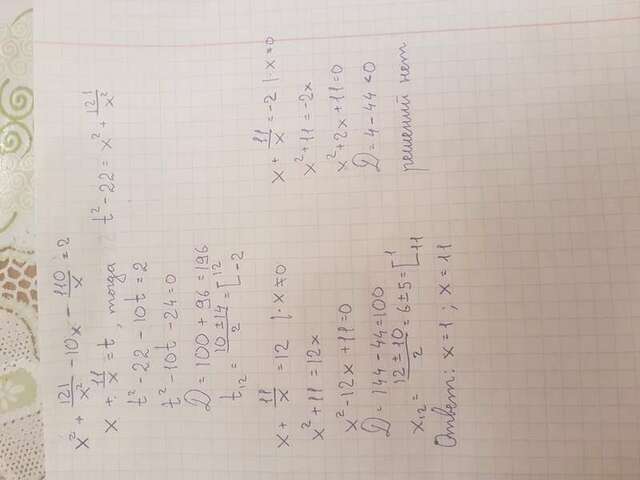 x² + 121/x² - 10x - 110/x = 2
x + 11/x = t, тогда t² - 22 = x² + 121/x²
t² - 22 - 10t = 2
t² - 10t - 24 = 0
D = 100 + 96 = 196
t₁₂ = (10 ± 14)/2 = [12 -2
x + 11/x = 12 |· x ≠ 0
x² + 11 = 12x
x² - 12x + 11 = 0
D = 144 - 44 = 100
x₁₂ = (12 ± 10)/2 = 6 ± 5 = [1 11
x + 11/x = -2 |· x ≠ 0
x² + 11 = -2x
x² + 2x + 11 = 0
D = 4 - 44 < 0
решений нет
Ответ: x = 1 ; x = 11